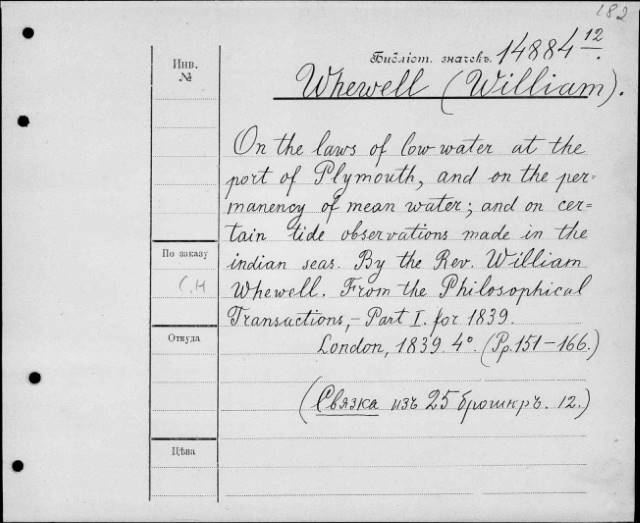 182
Инв.
№
Библіот. значекъ. 14884 12.
Whewell (William).
On the laws of low water at the
port of Plymouth, and on the per=
manency of mean water; and on cer=
tain tide observations made in the
indian seas. By the Rev. William
Whewell. From the Philosophical
Transactions,- Part I. for 1839.
London, 1839. 4°. (Pp. 151-166.)
(Связка изъ 25 брошюръ. 12.)
По заказу
С.Н
Откуда
Цѣна